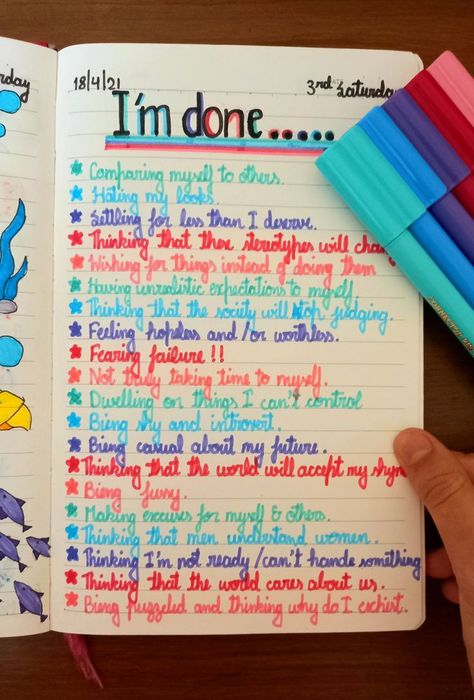 rday
18/4/21
3rd Saturday
I'm done.....
Comparing myself to others.
Hating my looks.
Settling for less than I deserve.
Thinking that these stereotypes will
Wishing for things instead of doing them
Having unrealistic expectations to myself
Thinking that the society will stop judging.
Feeling hopeless and/or worthless.
Fearing failure !!
Not truly taking time to myself.
Dwelling on things I can't control
Bieng shy and introvert.
Bieng casual about my future.
Thinking that the world will accept my
Bieng funy.
Making excuses for myself & others.
Thinking that men understand women.
Thinking I'm not ready/can't hande something
Thinking that the world cares about us.
Bieng puzzeled and thinking why do I exchist.